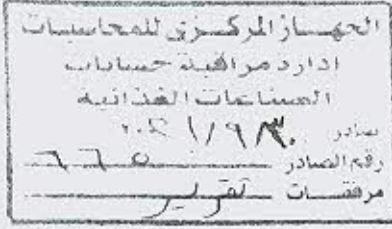 الجهـــاز المركـــزى للمحاسبـــات
ادارة مراقبة حسابات
الصناعات الغذائية
صادر ٣٠/٩/٢٠٢١
رقم الصادر ٦٦٥
مرفقـــات تقرير